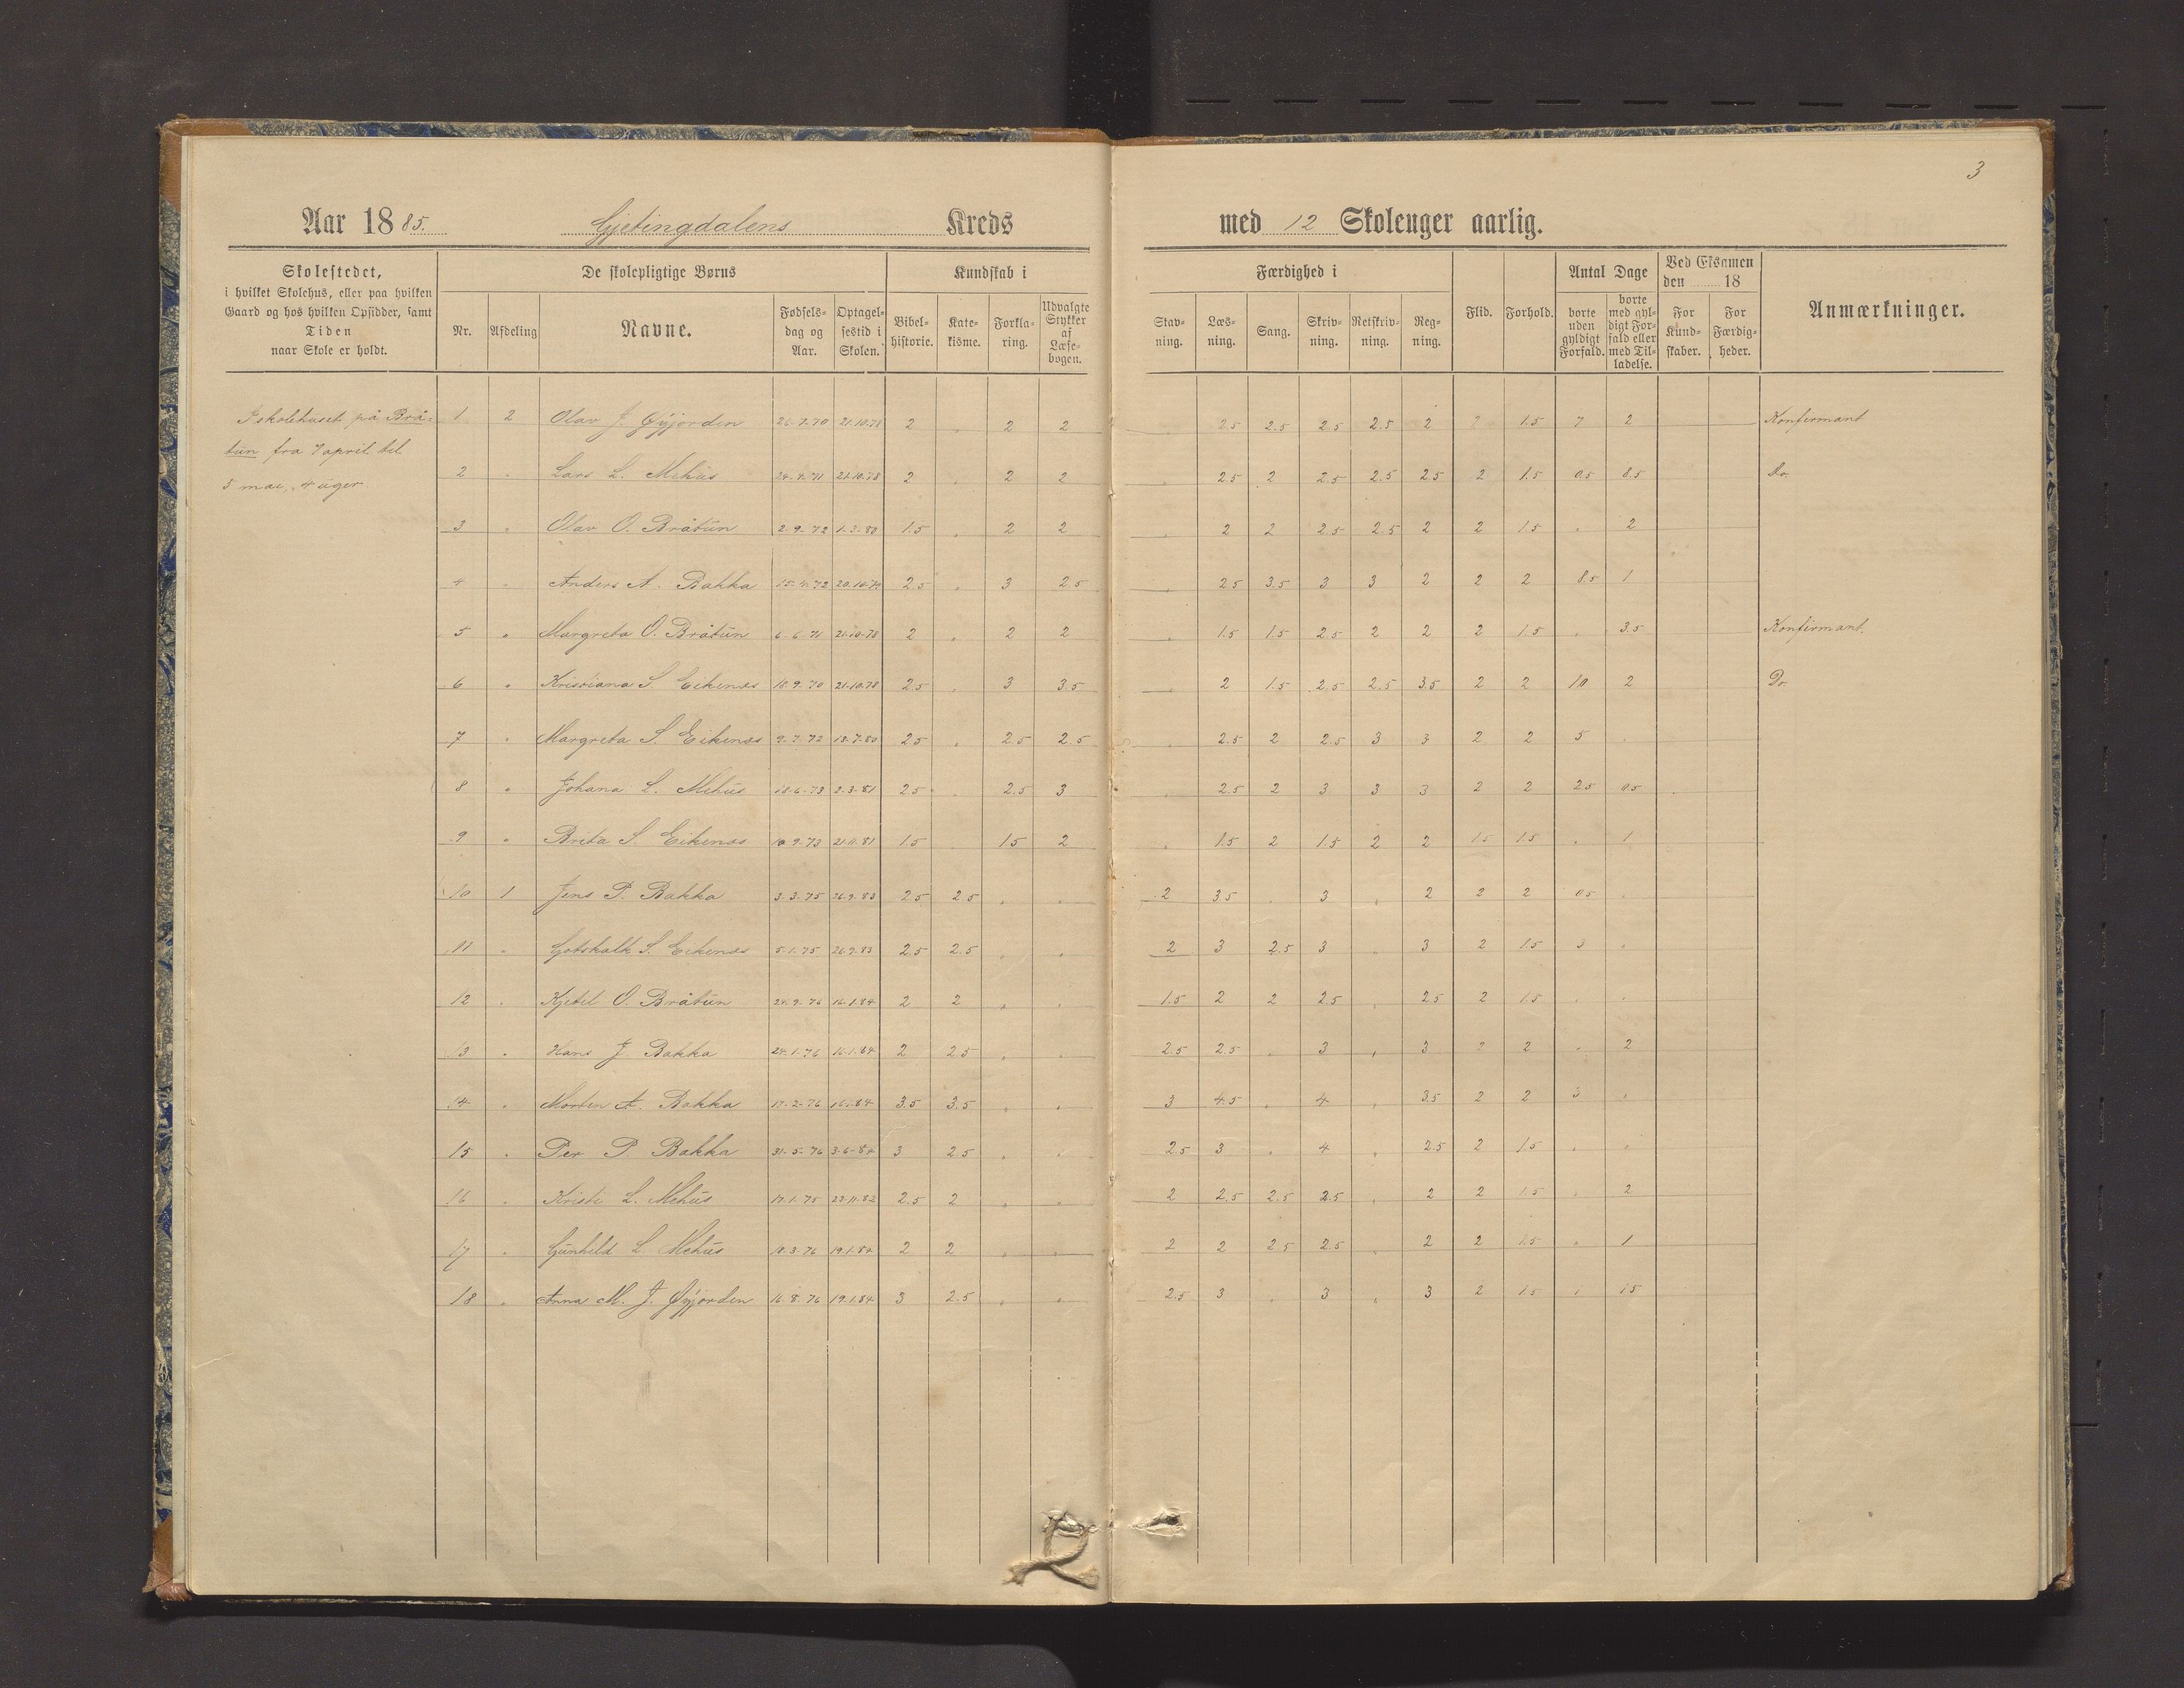 3
Aar 1885. Gjetingdalens Kreds med 12 Skoleuger aarlig.
Skolestedet, i hvilket Skolehus, eller paa hvilken Gaard og hos hvilken Opsidder, samt Tiden naar Skole er holdt.
De skolepligtige Børns
Nr. Afdeling Navne. Fødselsdag og Aar. Optagelsestid i Skolen.
Kundskab i
Bibelhistorie. Katekisme. Forklaring. Udvalgte Stykker af Læsebogen.
Færdighed i
Stavning. Læsning. Sang. Skrivning. Retskrivning. Regning.
Flid. Forhold.
Antal Dage
borte uden gyldigt Forfald. borte med gyldigt Forfald eller med Tilladelse.
Ved Eksamen den 18
For Kundskaber. For Færdigheder.
Anmærkninger.
I skolehuset på Brå-
tun fra 7 april til
5 mai, 4 uger.
1 2 Olav J. Øyjorden 26.7.70 21.10.78 2 " 2 2 " 2.5 2.5 2.5 2.5 2 2 1.5 7 2 Konfirmant
2 " Lars L. Mehus 24.4.71 21.10.78 2 " 2 2 " 2.5 2 2.5 2.5 2.5 2 1.5 0.5 8.5 Do.
3 " Olav O. Bråtun 2-9-72 1-3-80 1.5 " 2 2 " 2 2 2.5 2.5 2 2 1.5 " 2
4 " Anders A. Bakka 15-4-72 20.10.79 2.5 " 3 2.5 " 2.5 3.5 3 3 2 2 2 8.5 1
5 " Margreta O. Bråtun 6-6-71 21-10-78 2 " 2 2 " 1.5 1.5 2.5 2 2 2 1.5 " 3.5 Konfirmant.
6 " Kristiana S. Eikenæs 18.9.70 21.10.78 2.5 " 3 3.5 " 2 1.5 2.5 2.5 3.5 2 2 10 2 Do.
7 " Margreta S. Eikenæs 9.7.72 13.7.80 2.5 " 2.5 2.5 " 2.5 2 2.5 3 3 2 2 5 "
8 " Johana L. Mehus 18-6-73 2-3-81 2.5 " 2.5 3 " 2.5 2 3 3 3 2 2 2.5 0.5
9 " Brita S. Eikenæs 10 9.73 21.11.81 1.5 1.5 2 " 1.5 2 1.5 2 2 1.5 1.5 " 1
10 1 Jens P. Bakka 3-3-75 26.9.83 2.5 2.5 " " 2 3.5 " 3 " 2 2 2 0.5 "
11 " Gotskalk S. Eikenæs 5.1.75 26.9.83 2.5 2.5 " " 2 3 2.5 3 " 3 2 1.5 3 "
12 " Kjetel O. Bråtun 24.9.76 16.1.84 2 2 " " 1.5 2 2 2.5 " 2.5 2 1.5 " "
13 " Hans J. Bakka 24.1.76 16.1.84 2 2.5 " " 2.5 2.5 " 3 " 3 2 2 " 2
14 " Morten A. Bakka 17-2-76 16.1.84 3.5 3.5 " " 3 4.5 " 4 " 3.5 2 2 3 "
15 " Per P. Bakka 31-5-76 3-6-84 3 2.5 " " 2.5 3 " 4 " 2.5 2 1.5 " "
16 " Kristi L. Mehus 17.1.75 23.11.82 2.5 2 " " 2 2.5 2.5 2.5 " 2 2 1.5 " 2
17 " Gunhild L. Mehus 18.3.76 19.1.84 2 2 " " 2 2 2.5 2.5 " 2 2 1.5 " 1
18 " Anna M. J. Øyjorden 16.8.76 19.1.84 3 2.5 " " 2.5 3 " 3 " 3 2 1.5 " 1.5